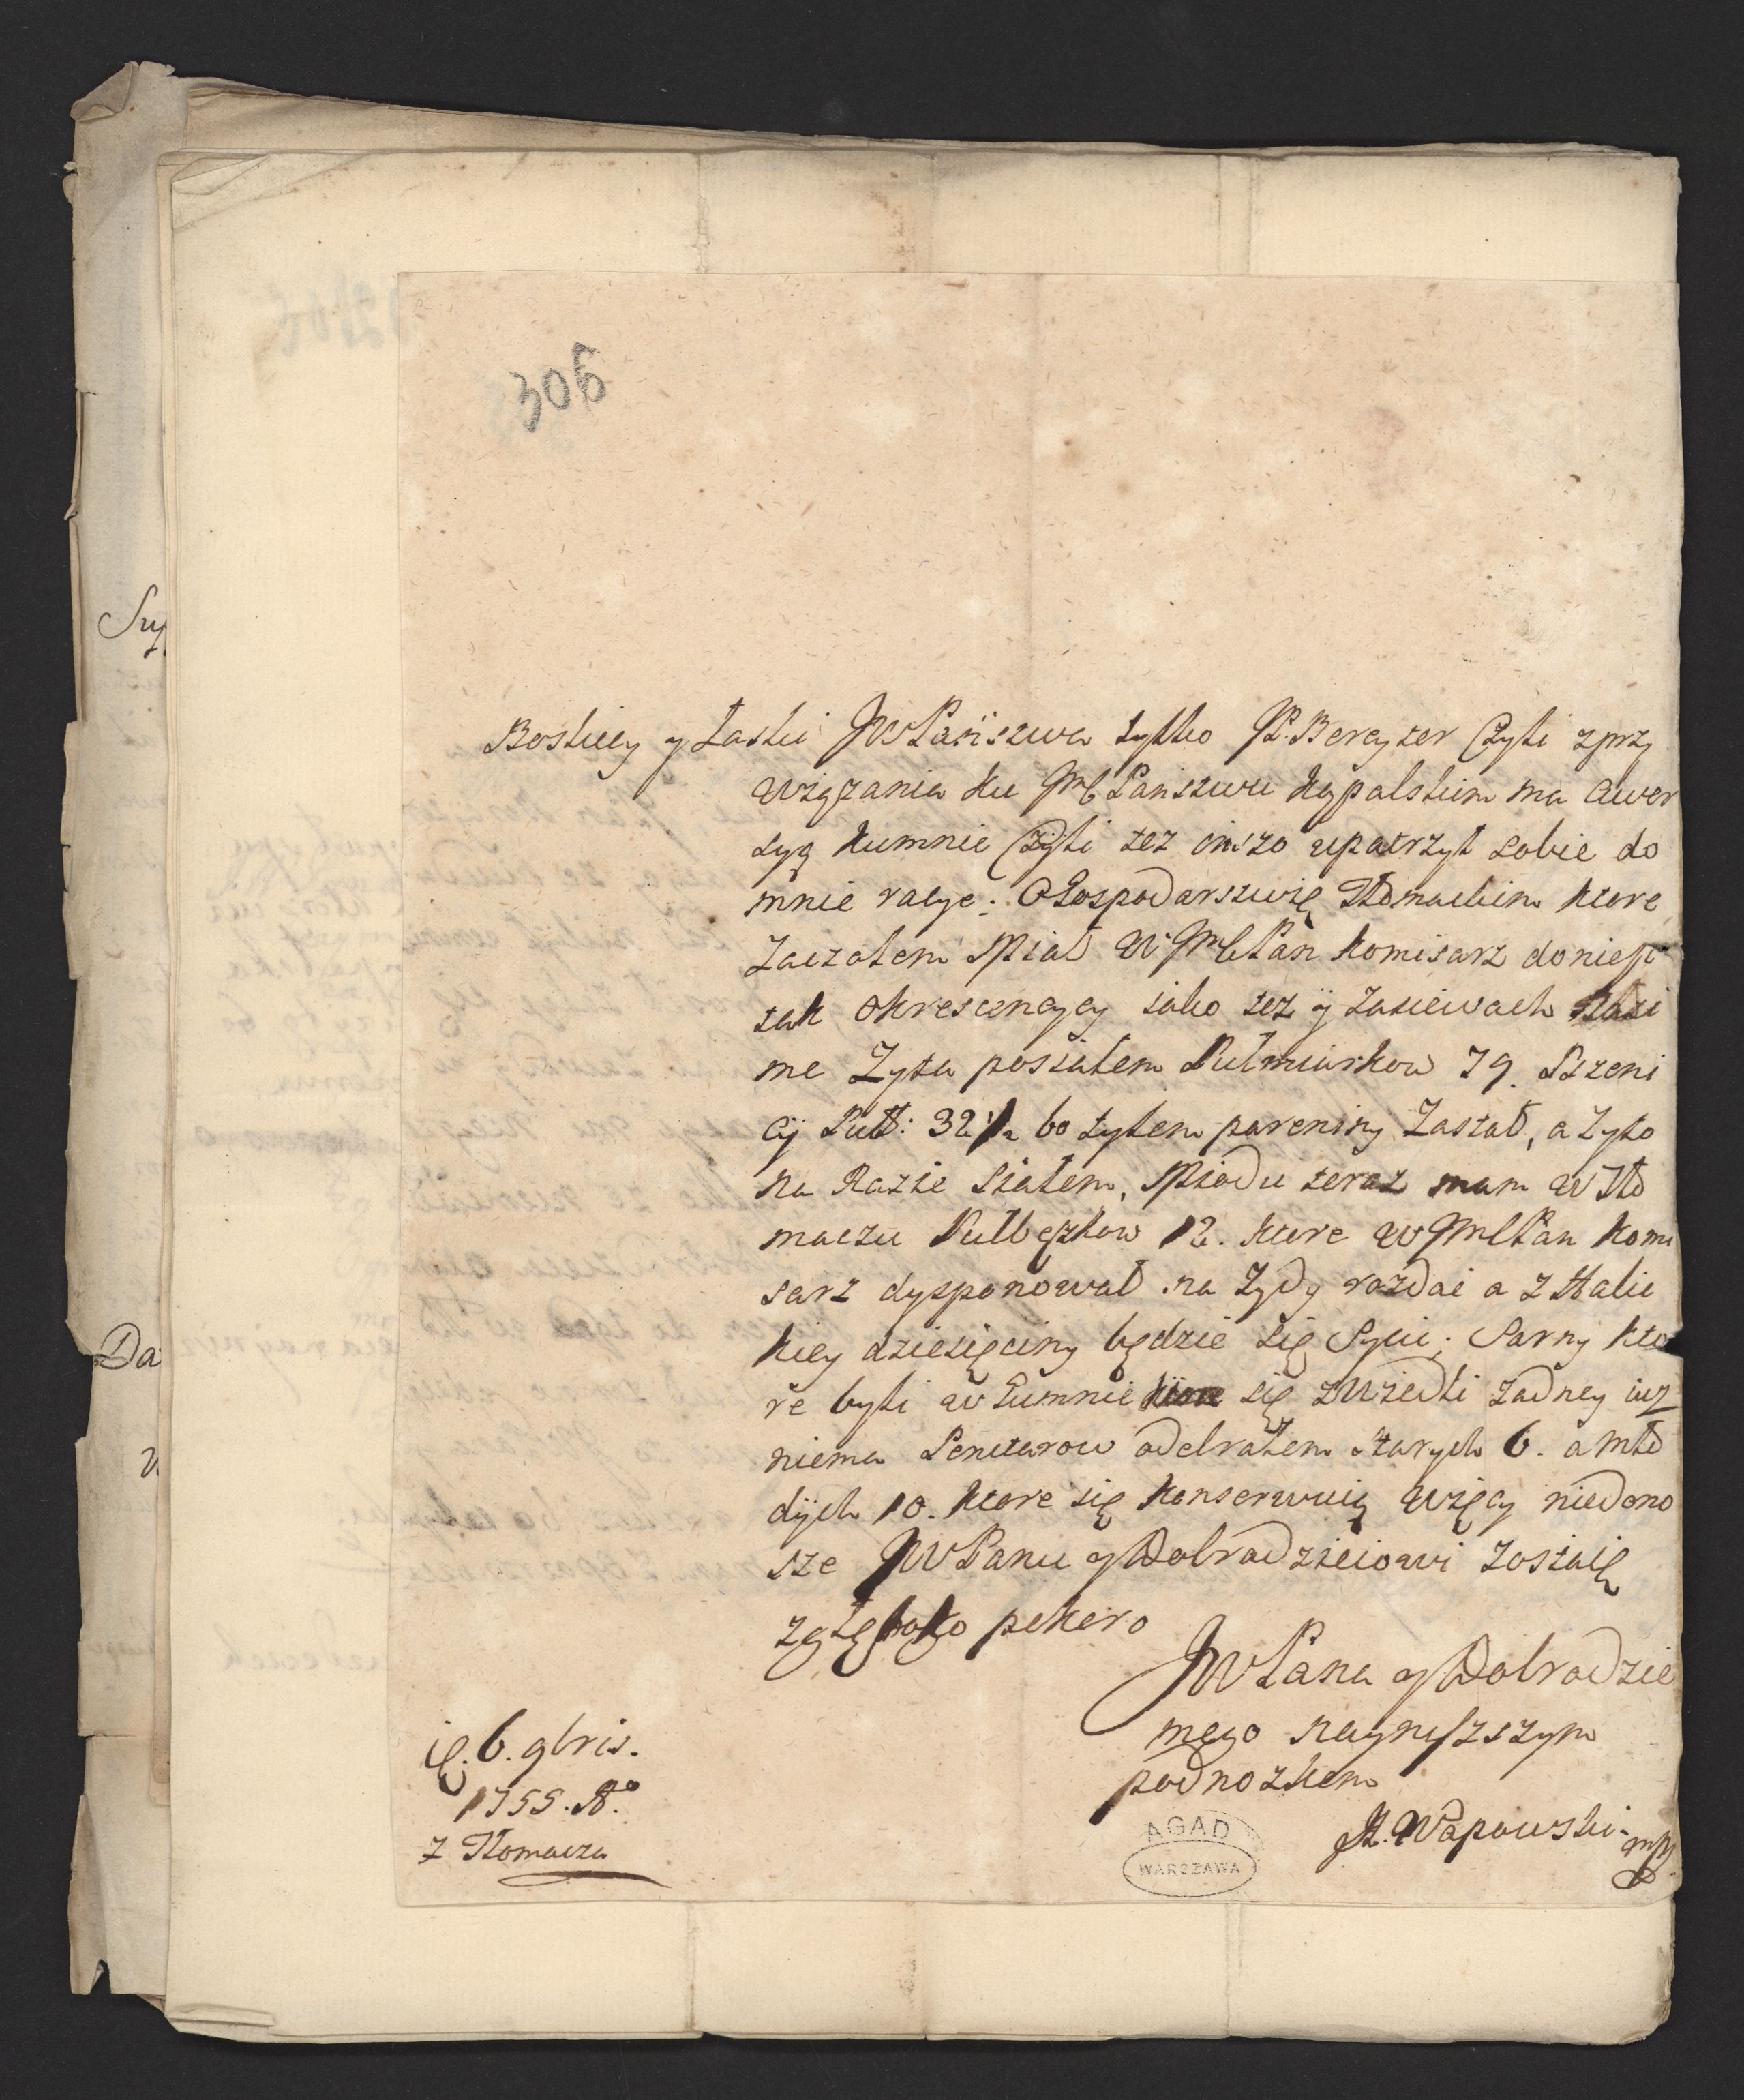 306
Boskiey y Łaski JWPaństwa tylko JP. Bereyter Czyli zprzy
wiązania ku JchPaństwu Kapalskim ma awer
syą kumnie Czyli tez inszo upatrzył sobie do
mnie racye: OGospodarswię Tłomackim ktore
Zaczołem Miał W JmCPan Komisarz doniesc
tak Okrescencyey iako tez ÿ zasiewach
me Zyta posiałem Pułmiarkow 79. Pszeni
cÿ Puł: 32 1/2 bo tylem pareniny Zastał, a Zyto
na Razie Siałem, Miodu teraz mam w Tło
maczu Pułbeczkow 12. ktore W JmCPan Komi
sarz dysponował na Zydy rozdac a z Halic
kiey dziesięciny będzie się Sycic; Sarny kto
re byli w Gumnie się zwiedli zadney iuz
niema Penctarow odebrałem Starych 6. a mło
dÿch 10. ktore się konserwuią więcy niedono
sze JWPanu y Dobrodzieiowi zostaię
zgłęboko pokero
JWPana y Dobrodzie
mego nayniszszym
podnozkiem
M. Wapowski mp.
ię. 6. 9bris.
1755. Ao.
z Tłomacza
AGAD
WARSZAWA
Suy
Da